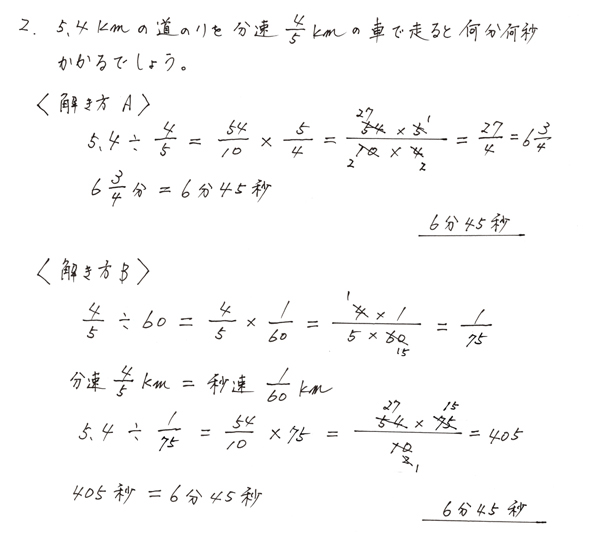 2. 5.4 kmの道のりを分速 4/5 kmの車で走ると何分何秒
かかるでしょう。
〈解き方A〉
5.4 ÷ 4/5 = 54/10 × 5/4 = (54 × 5)/(10 × 4) = 27/4 = 6 3/4
6 3/4 分 = 6分45秒
6分45秒
〈解き方B〉
4/5 ÷ 60 = 4/5 × 1/60 = (4 × 1)/(5 × 60) = 1/75
分速 4/5 km = 秒速 1/60 km
5.4 ÷ 1/75 = 54/10 × 75 = (54 × 75)/10 = 405
405秒 = 6分45秒
6分45秒